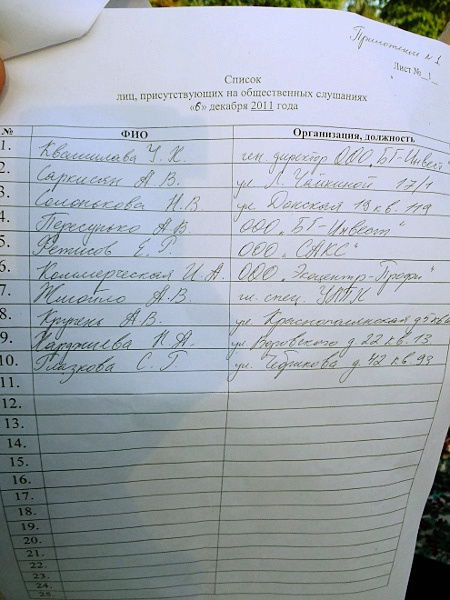 Приложение №1
Лист №_1_
Список
лиц, присутствующих на общественных слушаниях
«6» декабря 2011 года
№ ФИО Организация, должность
1. У. К. ген. директор ООО „БГ-Инвест“
2. Саркисян А В. ул Л. Чайкиной 17/1
3. Солонькова Н.В. ул Донская 19 кв. 119
4. Пересунько А В ООО „БГ-Инвест“
5. Фетисов Е. Г. ООО „САКС“
6. Коммерческая И.А. ООО „Экоцентр-Профи“
7. Жмайло А.В. гл. спец.
8. Кручень А В. ул Краснополянская
9. Н.А. ул Воровского д 22 кв. 13
10. Глазкова С. Г ул. Чебрикова д 42 кв 93
11.
12.
13.
14.
15.
16.
17.
18.
19.
20.
21.
22.
23.
24.
25.